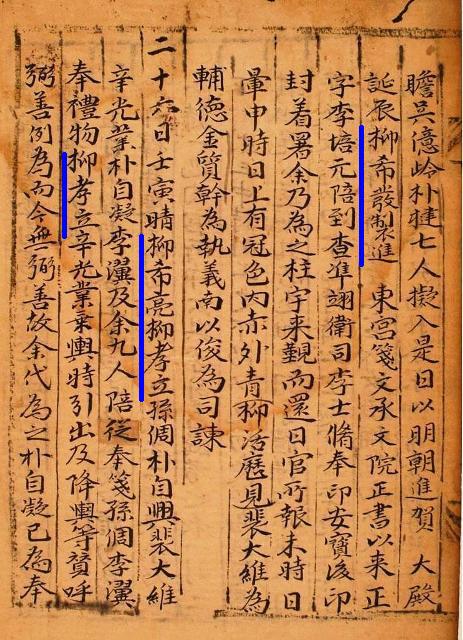 瞻吳億齡朴楗七人擬入是日以明朝進賀 大殿
誕辰柳希發製進 東宮箋文承文院正書以来正
字李培元陪到查准翊衛司李士脩奉印安寶後印
封着署余乃為之柱字来觀而還日官所報未時日
暈申時日上有冠色内赤外青柳汸歷見裴大維為
輔德金質幹為執義南以俊為司諫
二十六日壬寅晴柳希亮柳孝立孫倜朴自興裴大維
辛光業朴自凝李瀷及余九人陪從奉箋孫倜李瀷
奉禮物柳孝立辛光業乗輿時引出及降輿等贊呼
弼善例為而今無弼善故余代為之朴自凝已為奉